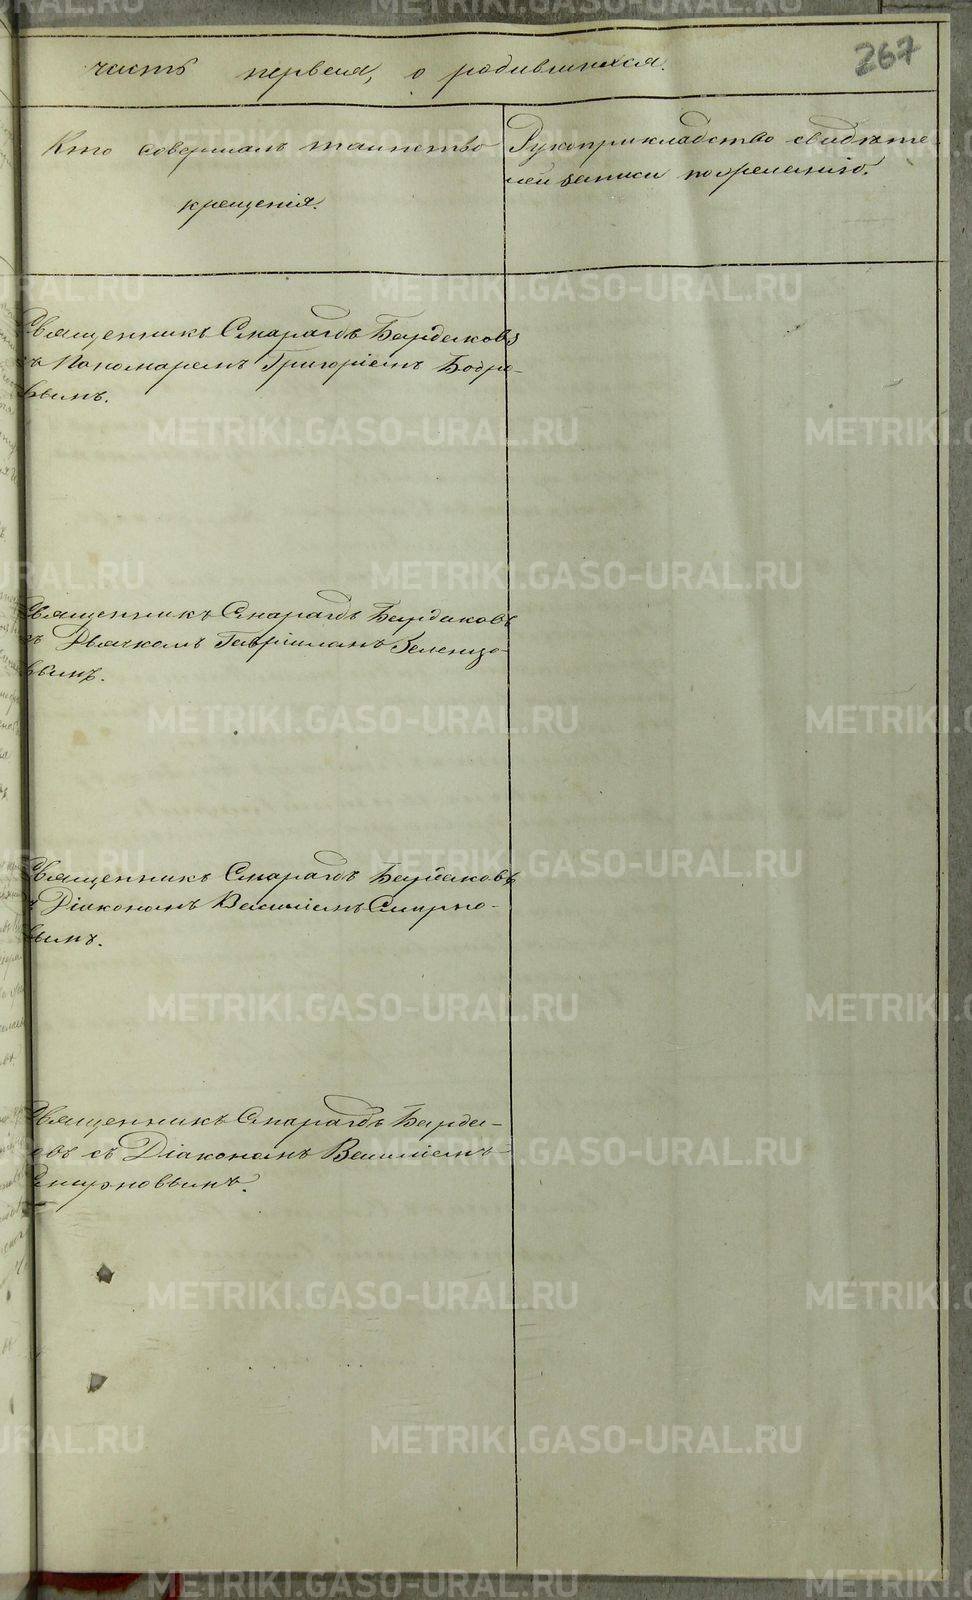 267
часть первая, о родившихся.
Кто совершалъ таинство
крещенія.
Рукоприкладство свидѣте-
лей записи по желанію.
Священникъ Смарагдъ Бардаковъ
съ Пономаремъ Григоріемъ Бобро-
вымъ.
Священникъ Смарагдъ Бардаковъ
съ Дьячкомъ Гавріиломъ
вымъ.
Священникъ Смарагдъ Бардаковъ
съ Діакономъ Василіемъ Смирно-
вымъ.
Священникъ Смарагдъ Барда-
ковъ съ Діакономъ Василіемъ
Смирновымъ.
METRIKI.GASO-URAL.RU